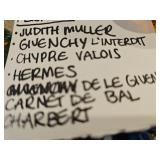 • JUDITH MULLER
• GIVENCHY L'INTERDIT
CHYPRE VALOIS
• HERMES
DE LE GIVEN
CARNET DE BAL
CHARBERT